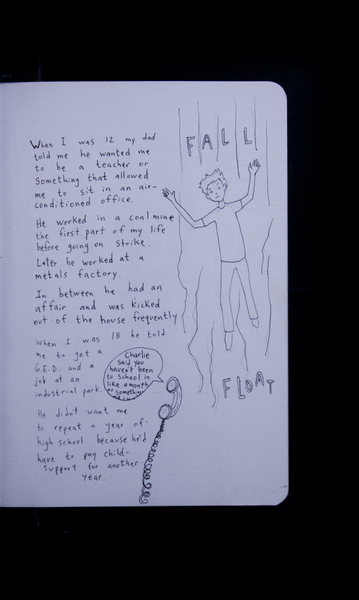 When I was 12 my dad
told me he wanted me
to be a teacher or
something that allowed
me to sit in an air-
conditioned office.
He worked in a coal mine
the first part of my life
before going on strike.
Later he worked at a
metals factory.
In between he had an
affair and was kicked
out of the house frequently
When I was 18 he told
me to get a
G.E.D. and a
job at an
industrial park.
He didn't want me
to repeat a year of
high school because he'd
have to pay child-
support for another
year.
Charlie
said you
haven't been
to school in
like a month
or something
FALL
FLOAT